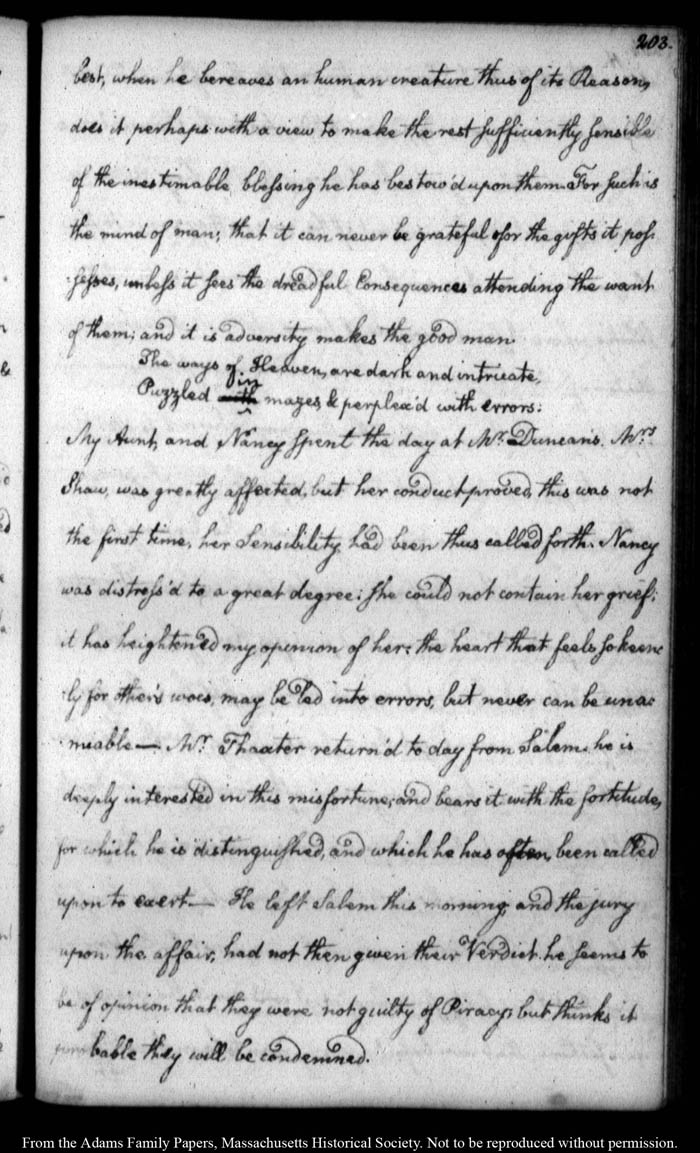 203.
best, when he bereaves an human creature thus of its Reason,
does it perhaps with a view to make the rest sufficiently sensible
of the inestimable blessing he has bestow'd upon them. For such is
the mind of man; that it can never be grateful for the gifts it pos-
sesses, unless it sees the dreadful Consequences attending the want
of them; and it is adversity makes the good man.
The ways of Heaven, are dark and intricate,
in
Puzzled with mazes, & perplex'd with errors:
My Aunt, and Nancy spent the day at Mr. Duncan's. Mrs.
Shaw, was greatly affected, but her conduct proved, this was not
the first time, her Sensibility, had been thus called forth. Nancy
was distress'd to a great degree: she could not contain her grief;
it has heighten'd my opinion of her: the heart that feels so keen-
ly for other's woes, may be led into errors, but never can be una-
miable— Mr. Thaxter return'd to day from Salem. he is
deeply interested in this misfortune; and bears it with the fortitude,
for which he is distinguished, and which he has often, been called
upon to exert— He left Salem this morning, and the jury
upon the affair, had not then given their Verdict. he seems to
be of opinion that they were not guilty of Piracy; but thinks it
probable they will be condemned.
From the Adams Family Papers, Massachusetts Historical Society. Not to be reproduced without permission.